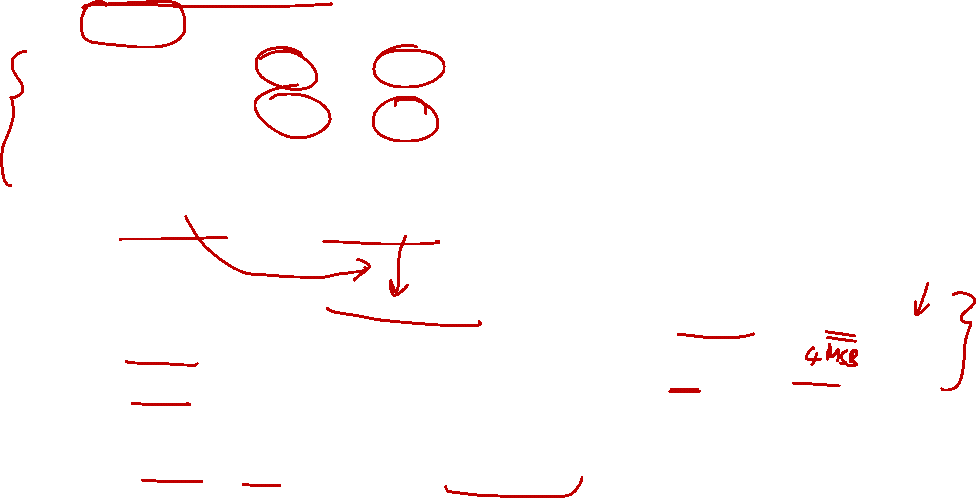 4 MSB